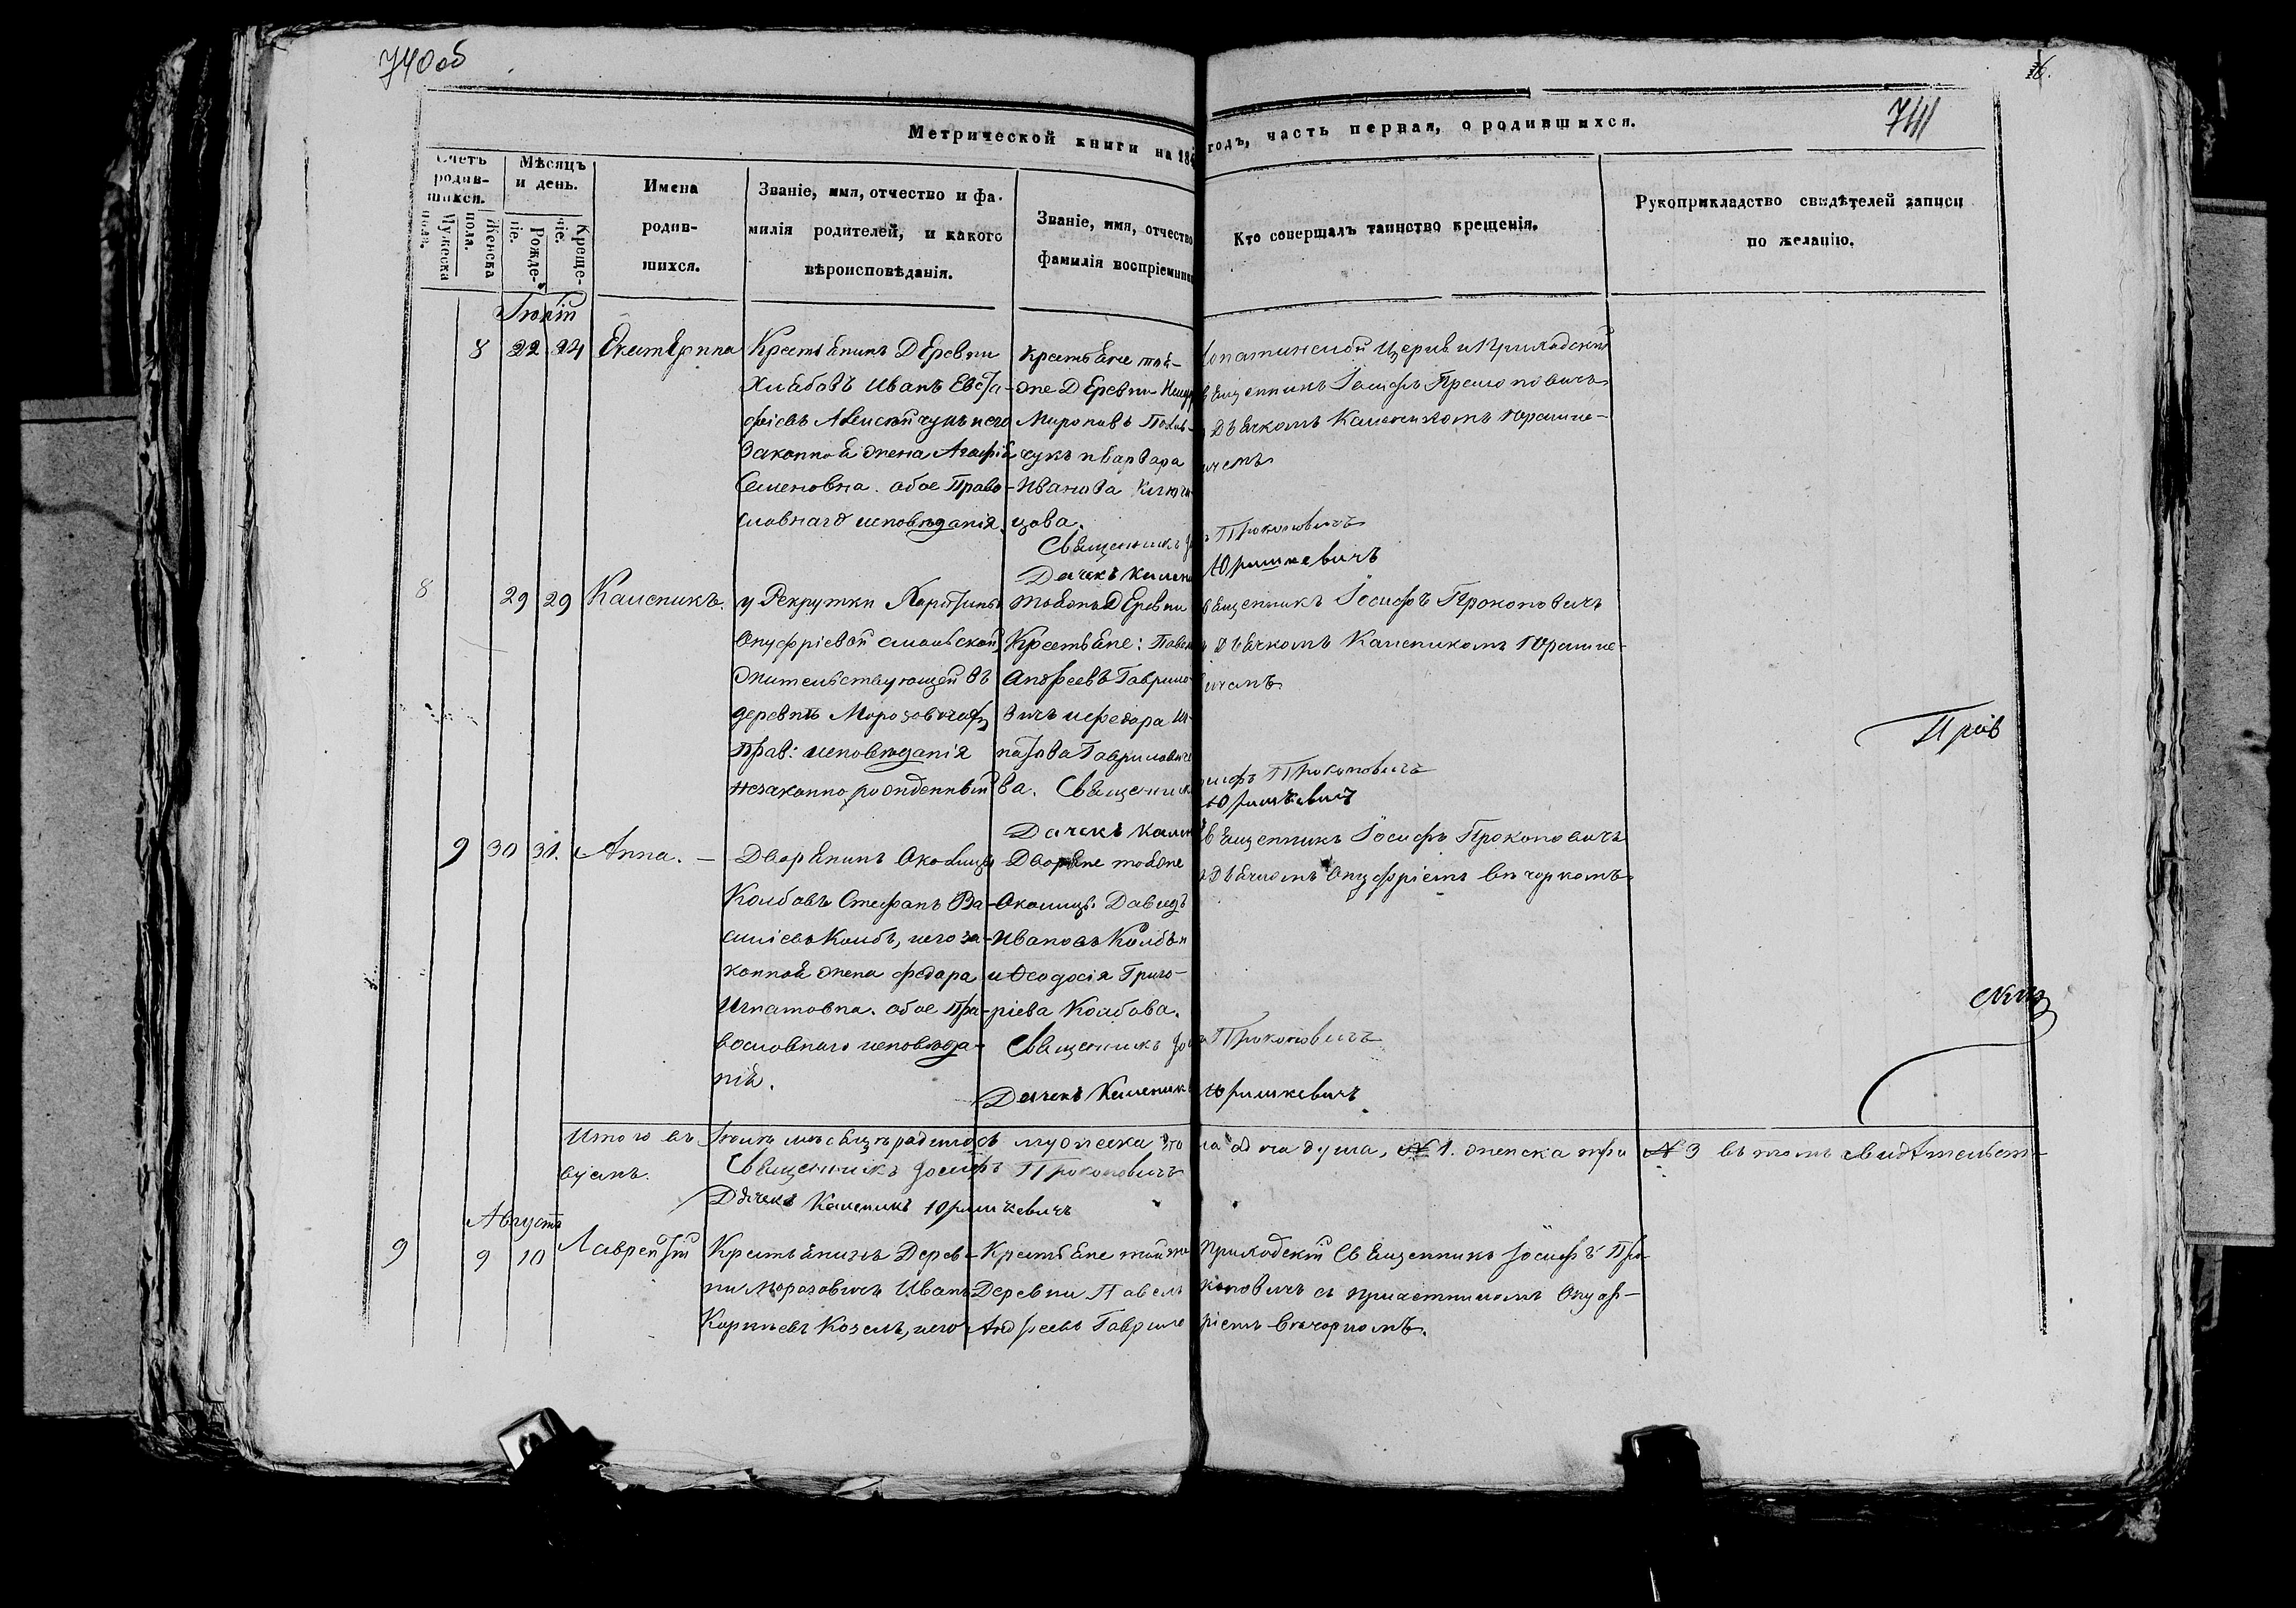 740об
6.
741
Метрической книги на 184
годъ, часть первая, о родившихся.
Счетъ родив-шихся.
Мужеска пола.
Женска пола.
Мѣсяцъ и день.
Рожде-ніе.
Креще-ніе.
Имена родив-шихся.
Званіе, имя, отчество и фа-
милія родителей, и какого
вѣроисповѣданія.
Званіе, имя, отчество
фамилія воспріемник
Кто совершалъ таинство крещенія.
Рукоприкладство свидѣтелей записи
по желанію.
8 22 24 Екатерина
Крестьянинъ Деревни
Иванъ Евста-
фіевъ
Законной жена Агафія
Семеновна. обое Право-
славнаго исповѣданія.
Крестьяне той-
же Деревни
Мироновъ
чукъ и Варвара
Иванова
цова.
Священникъ
Дьячекъ
Лопатинской Церкви Приходский
Священникъ Іосифъ Прокоповичъ
Дьячкомъ Каленикомъ Юрашке-
вичемъ
Прокоповичъ
Юрашкевичъ
8 29 29 Каленикъ.
у Рекрутки
Онуфріевой
жительствующей въ
деревнѣ Морозовичахъ
Прав: исповѣданія
незаконнорожденный
тояжъ Деревни
Крестьяне: Павелъ
Андреевъ Гаврило-
вичъ и Федора Иг-
натова Гавриловиче
ва. Священник
Дьячекъ Кален
Священникъ Іосифъ Прокоповичъ
Дьячкомъ Каленикомъ Юрашке-
вичемъ.
Іосифъ Прокоповичъ
Юрашкевичъ
9 30 31. Анна. —
Дворянинъ Околицы
Колбовъ Стефанъ Ва-
силіевъ Колбъ, его за-
конная жена Федора
Игнатовна. обое Пра-
вославнаго исповѣда-
нія.
Дворяне тояже
Околицы Давидъ
Ивановъ Колбъ
и Феодосія Григо-
ріева Колбова.
Священникъ
Дьячекъ Каленикъ
Священникъ Іосифъ Прокоповичъ
Дьячкомъ Онуфріемъ Вечоркомъ
Прокоповичъ
Юрашкевичъ
Итого въ Іюлѣ мѣсяцѣ родилось мужеска по
ла одна душа, № 1. женска три № 3 въ томъ свидѣтельст-
вуемъ.
Священникъ Іосифъ Прокоповичъ
Дьячекъ Каленикъ Юрашкевичъ
Августа
9 9 10 Лаврентій
Крестьянинъ Дерев-
ни Морозовичъ Иванъ
Корнѣевъ Козелъ, его
Крестьяне тойже
Деревни Павелъ
Андреевъ Гаврило
Приходскій Священникъ Іосифъ Про-
коповичъ съ причетникомъ Онуф-
ріемъ Вечоркомъ.